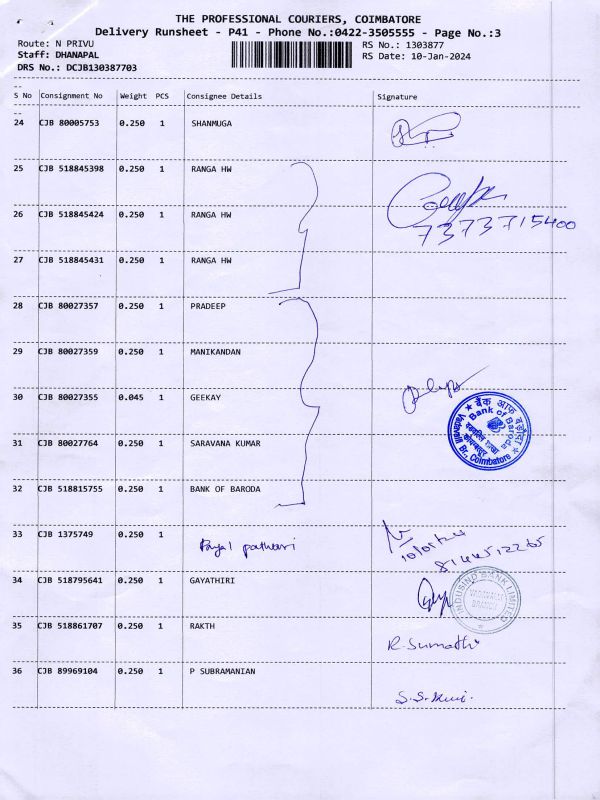 THE PROFESSIONAL COURIERS, COIMBATORE
Delivery Runsheet - P41 - Phone No.:0422-3505555 - Page No.:3
Route: N PRIVU RS No.: 1303877
Staff: DHANAPAL RS Date: 10-Jan-2024
DRS No.: DCJB130387703
S No Consignment No Weight PCS Consignee Details Signature
24 CJB 80005753 0.250 1 SHANMUGA
25 CJB 518845398 0.250 1 RANGA HW
26 CJB 518845424 0.250 1 RANGA HW
7373715400
27 CJB 518845431 0.250 1 RANGA HW
28 CJB 80027357 0.250 1 PRADEEP
29 CJB 80027359 0.250 1 MANIKANDAN
30 CJB 80027355 0.045 1 GEEKAY
बैंक ऑफ़ बड़ौदा
Bank of Baroda
Vadavalli Br., Coimbatore
31 CJB 80027764 0.250 1 SARAVANA KUMAR
32 CJB 518815755 0.250 1 BANK OF BARODA
33 CJB 1375749 0.250 1
34 CJB 518795641 0.250 1 GAYATHIRI
INDUSIND BANK LIMITED
VADAVALLI
BRANCH
35 CJB 518861707 0.250 1 RAKTH
R. Sumathi
36 CJB 89969104 0.250 1 P SUBRAMANIAN